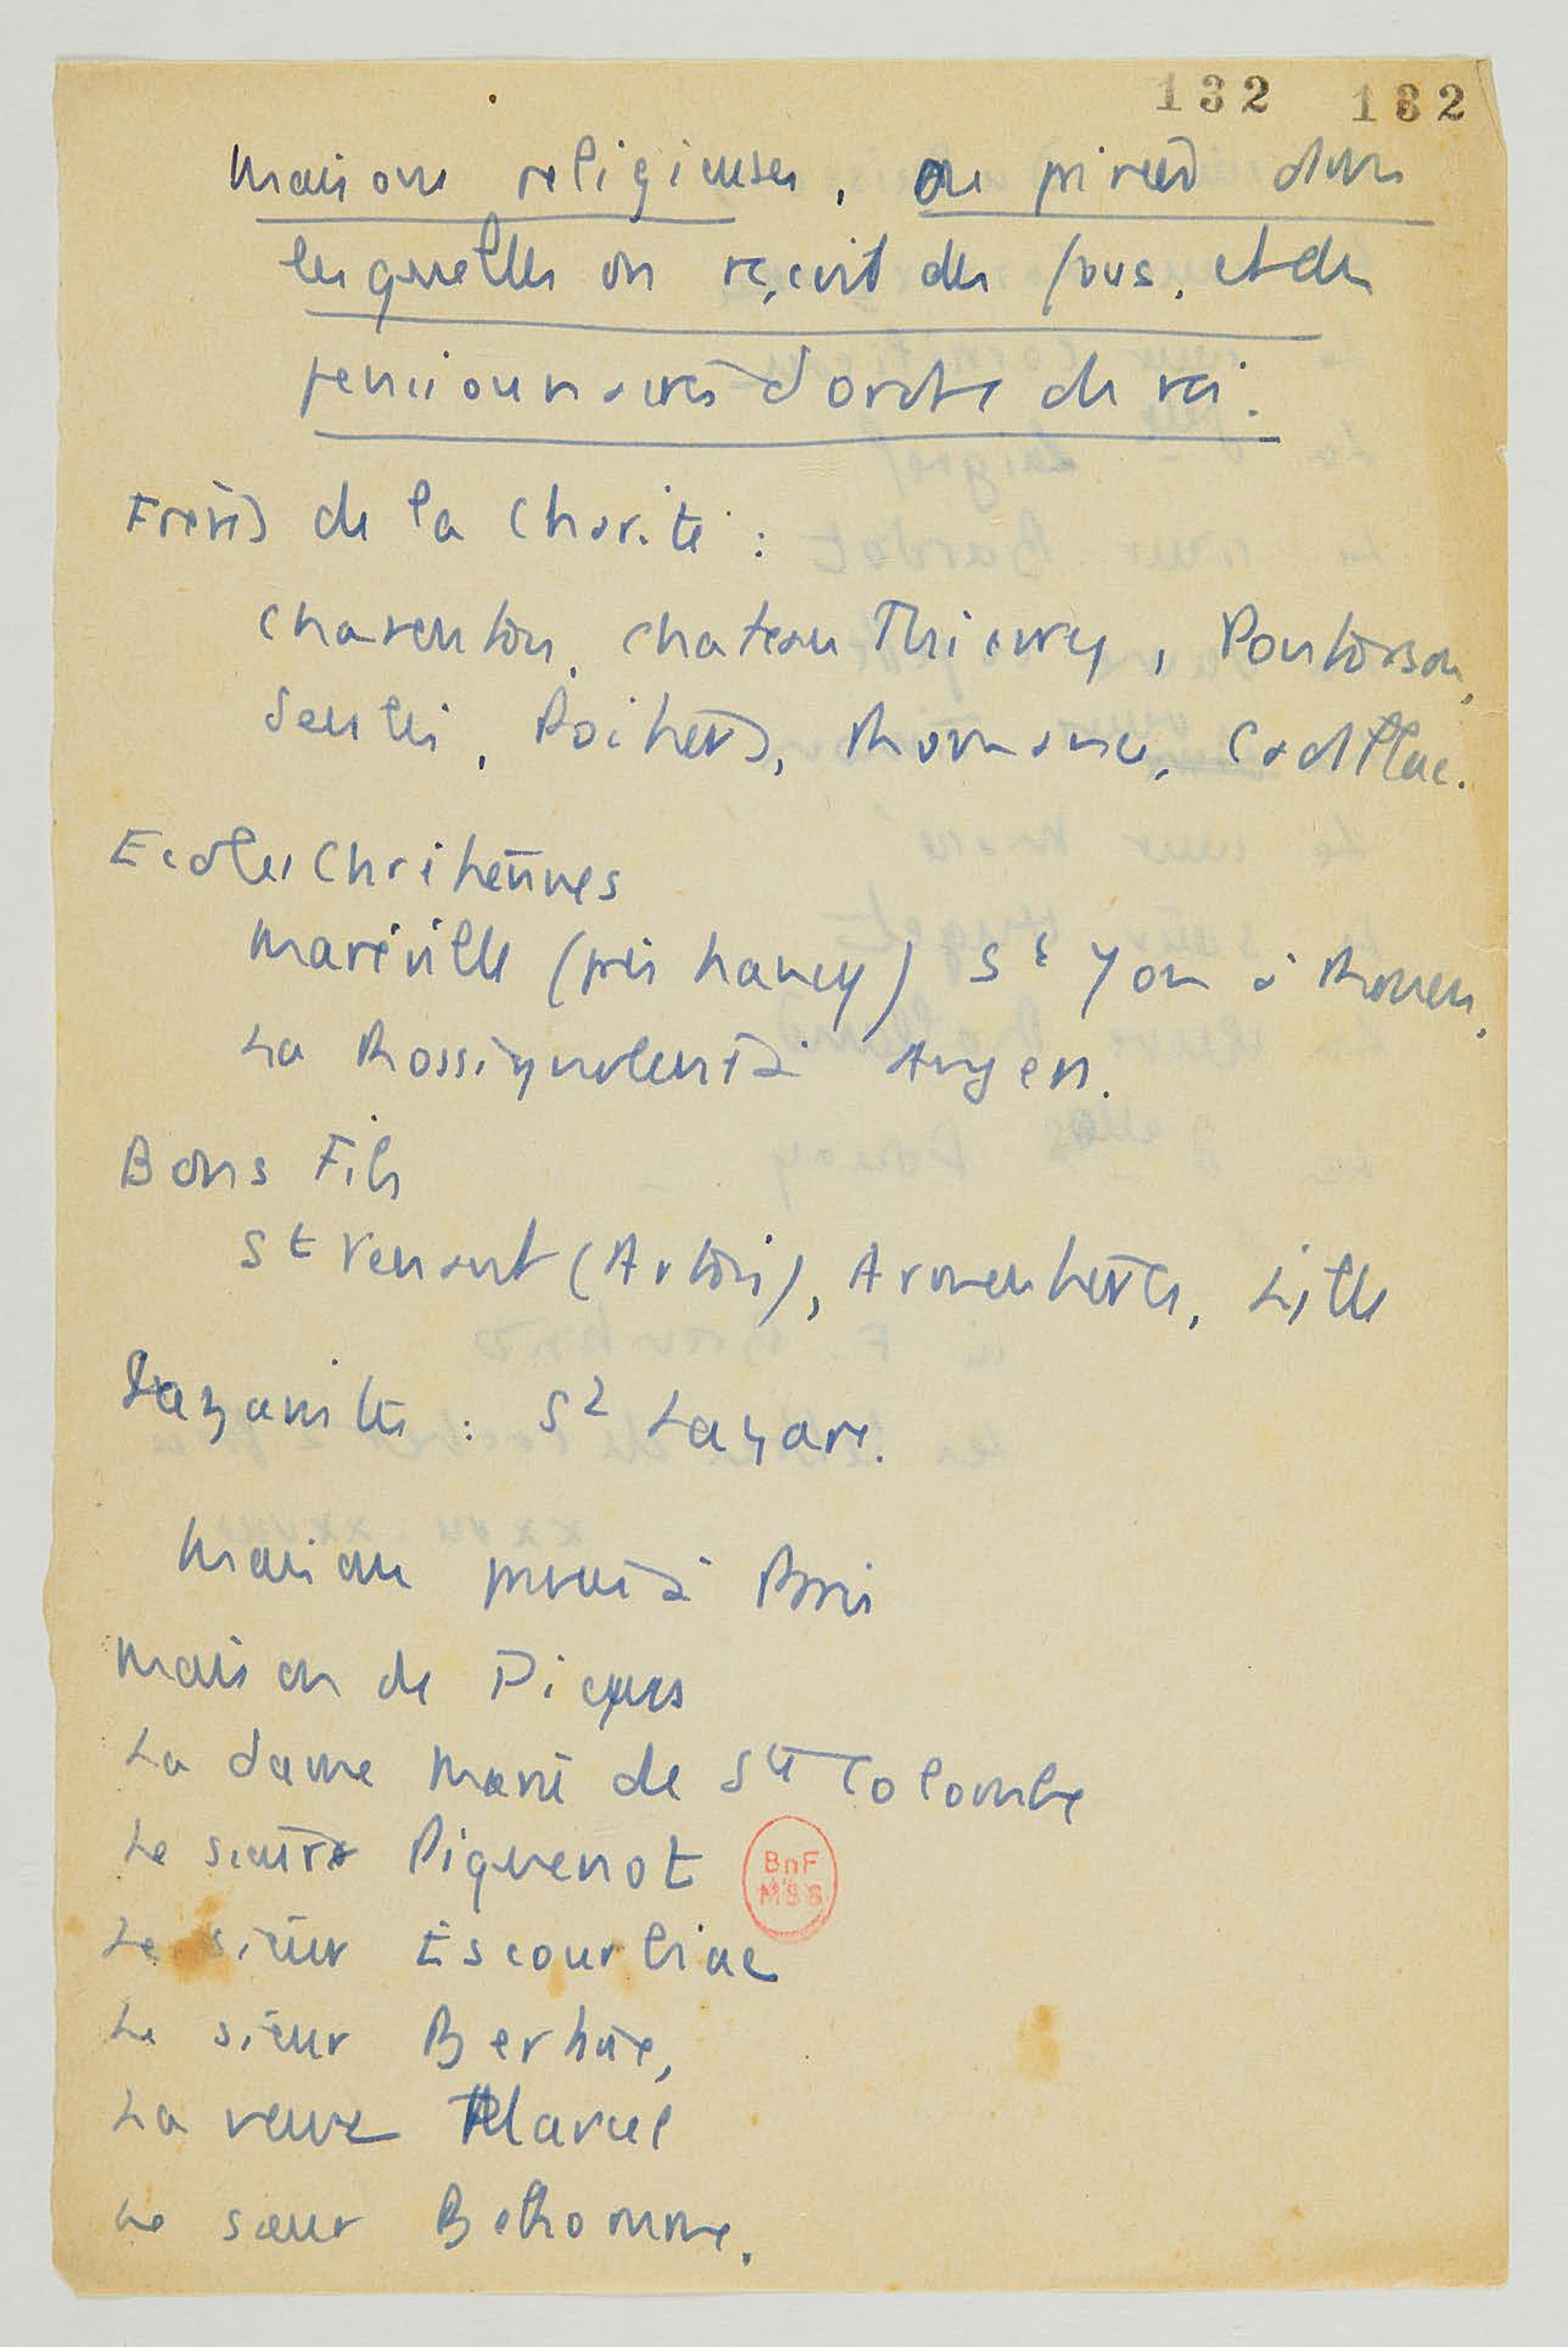 132 132
Maisons religieuses, ou privées dans
lesquelles on reçoit des fous, et des
pensionnaires d'ordre du roi.
Frères de la Charité :
Charenton, Chateau Thierry, Pontorson,
Senlis, Poitiers, Romans, Cadillac.
Ecoles Chrétiennes
Maréville (près Nancy) St Yon à Rouen,
La Rossignolerie à Angers.
Bons Fils
St Venant (Artois), Armentières, Lille
Lazaristes : St Lazare.
Maisons privées à Paris
Maison de Picpus
La dame Marie de Ste Colombe
Le sieur Piquenot
Le sieur Escourbiac
Le sieur Bertaux,
La veuve Marcel
Le sieur Belhomme.
BnF
MSS